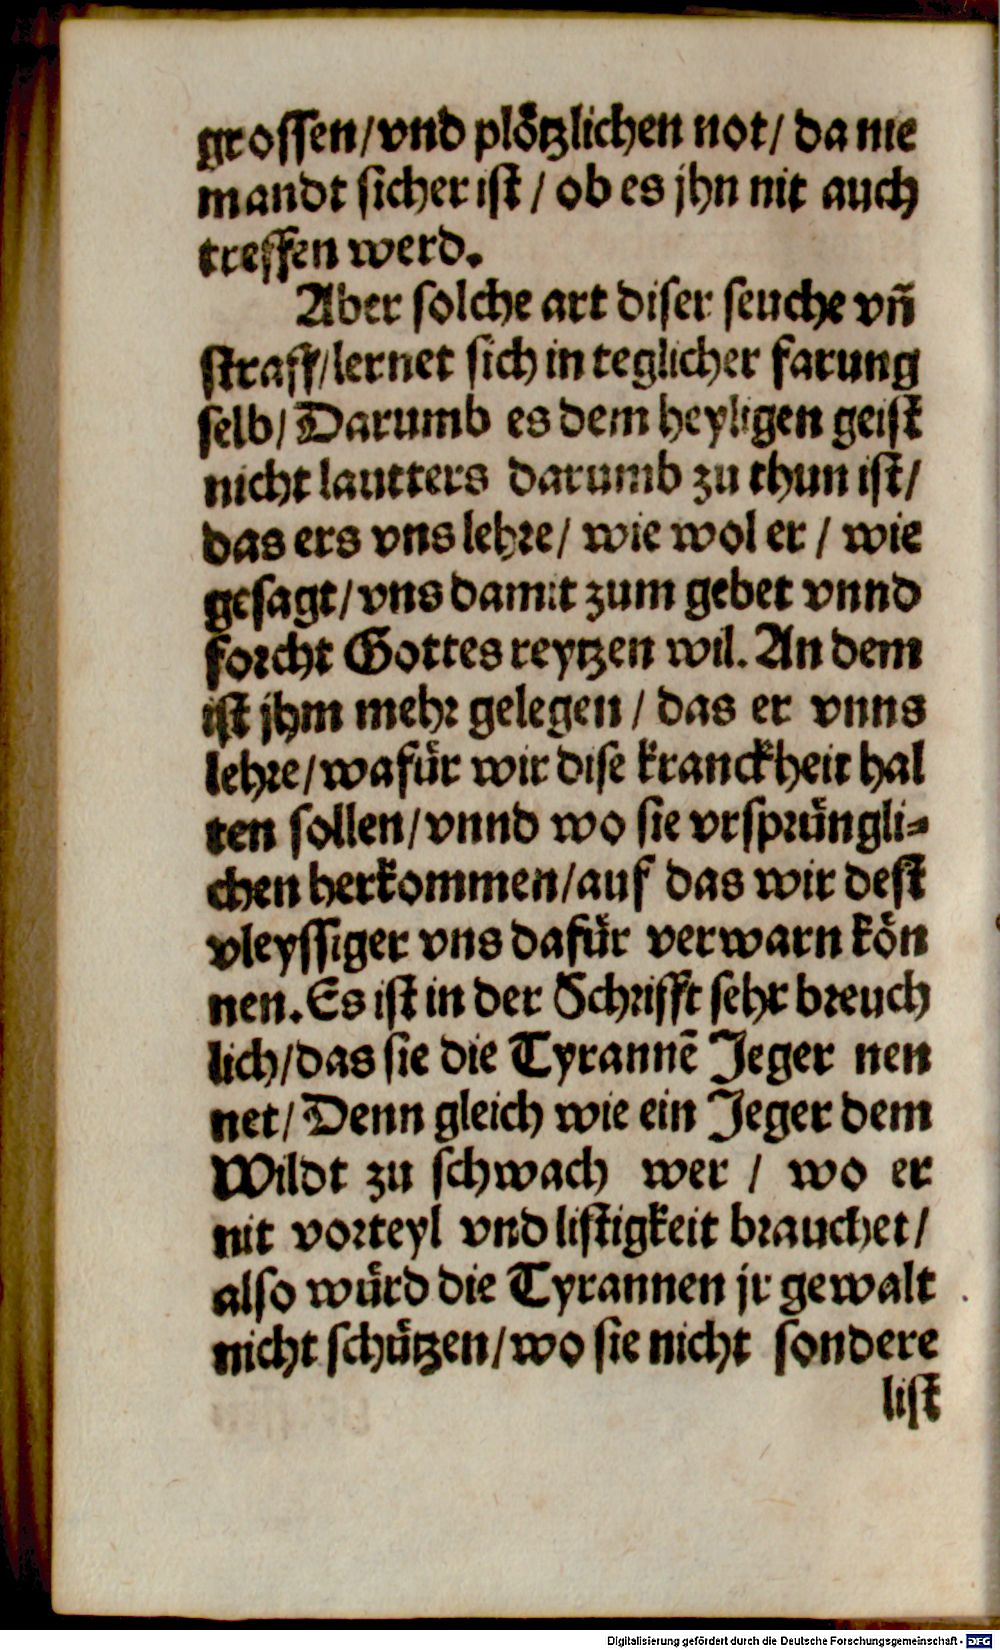 grossen/vnd plötzlichen not/ da nie
mandt sicher ist / ob es jhn nit auch
treffen werd.
Aber solche art diser seuche vñ
straff/lernet sich in teglicher farung
selb/ Darumb es dem heyligen geist
nicht lautters darumb zu thun ist/
das ers vns lehre/ wie wol er / wie
gesagt/vns damit zum gebet vnnd
forcht Gottes reytzen wil. An dem
ist jhm mehr gelegen / das er vnns
lehre/wafür wir dise kranckheit hal
ten sollen/vnnd wo sie vrsprüngli-
chen herkommen/auf das wir dest
vleyssiger vns dafür verwarn kön
nen. Es ist in der Schrifft sehr breuch
lich/das sie die Tyrannē Jeger nen
net/ Denn gleich wie ein Jeger dem
Wildt zu schwach wer / wo er
nit vorteyl vnd listigkeit brauchet/
also würd die Tyrannen jr gewalt
nicht schützen/wo sie nicht sondere
list
Digitalisierung gefördert durch die Deutsche Forschungsgemeinschaft - DFG